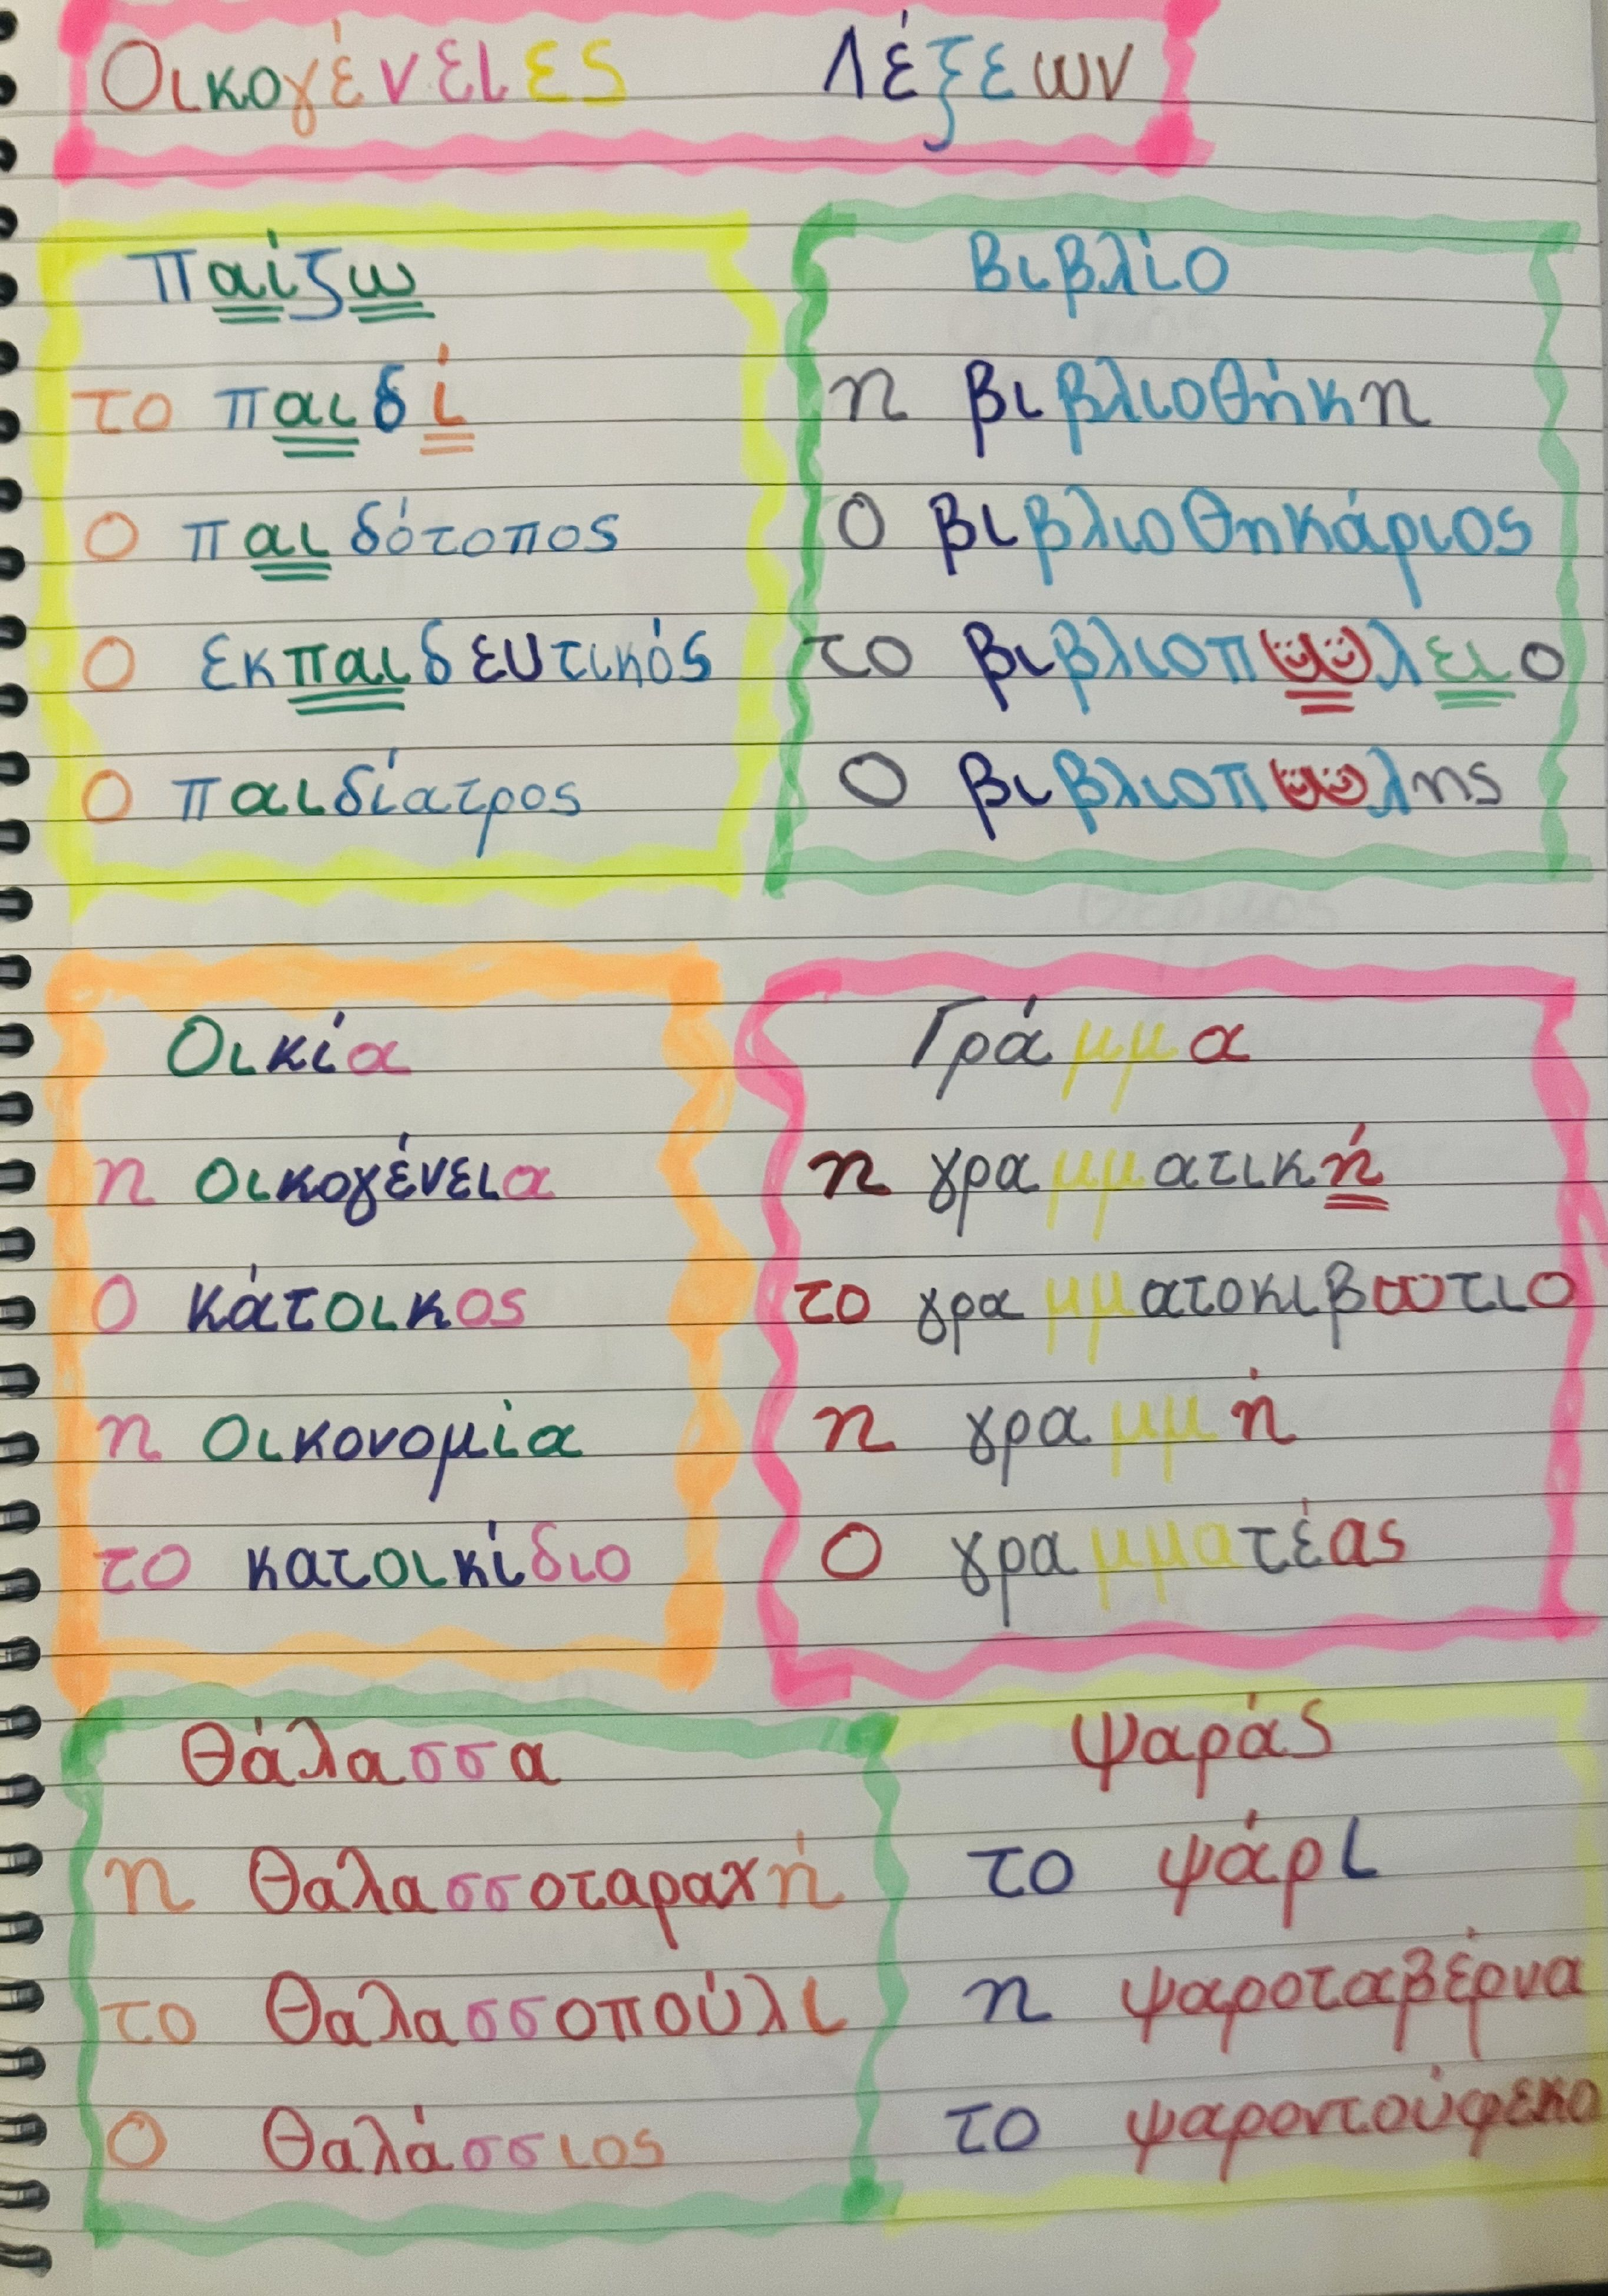 Οικογένειες Λέξεων
παίζω
το παιδί
ο παιδότοπος
ο εκπαιδευτικός
ο παιδίατρος
βιβλίο
η βιβλιοθήκη
ο βιβλιοθηκάριος
το βιβλιοπωλειο
ο βιβλιοπωλης
Οικία
η οικογένεια
ο κάτοικος
η οικονομία
το κατοικίδιο
Γράμμα
η γραμματική
το γραμματοκιβωτιο
η γραμμή
ο γραμματέας
Θάλασσα
η θαλασσοταραχή
το θαλασσοπούλι
ο θαλάσσιος
ψαράς
το ψάρι
η ψαροταβέρνα
το ψαροντούφεκο